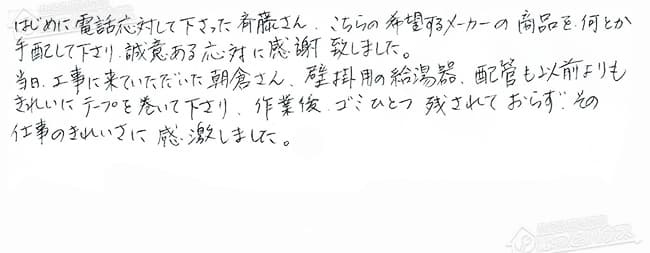 はじめに電話応対して下さった斉藤さん、こちらの希望するメーカーの商品を何とか
手配して下さり、誠意ある応対に感謝致しました。
当日、工事に来ていただいた朝倉さん、壁掛用の給湯器、配管も以前よりも
きれいにテープを巻いて下さり、作業後、ゴミひとつ残されておらず、その
仕事のきれいさに感激しました。